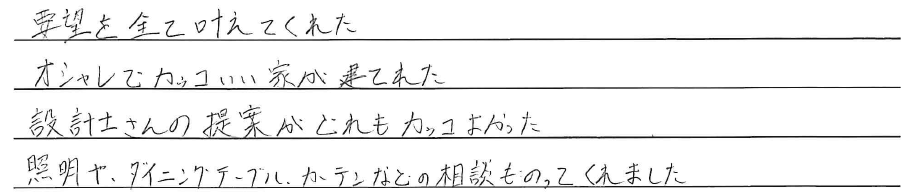 要望を全て叶えてくれた
オシャレでカッコいい家が建てれた
設計士さんの提案がどれもカッコよかった
照明や、ダイニングテーブル、カーテンなどの相談ものってくれました